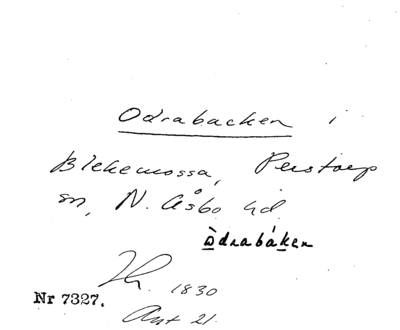 Odrabacken i
Blekemossa, Perstorp
sn, N. Åsbo hd
òdrabáken
1830
Nr 7327.
Ant 21.